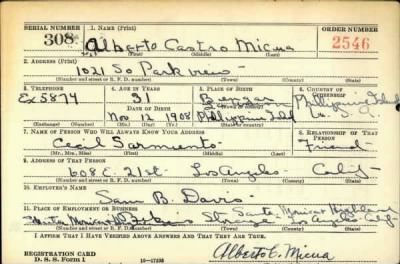 SERIAL NUMBER 1. NAME (Print) ORDER NUMBER
308 Alberto Castro Micua 2546
(First) (Middle) (Last)
2. ADDRESS (Print)
1021 So Park view
(Number and street or R. F. D. number) (Town) (County) (State)
3. TELEPHONE 4. AGE IN YEARS 5. PLACE OF BIRTH 6. COUNTRY OF CITIZENSHIP
Ex 5874 31 Philippine
DATE OF BIRTH (Town or county)
Nov 12 1908 Philippine Isl
(Exchange) (Number) (Mo.) (Day) (Yr.) (State or country)
7. NAME OF PERSON WHO WILL ALWAYS KNOW YOUR ADDRESS 8. RELATIONSHIP OF THAT PERSON
Cecil Sarmiento Friend
(Mr., Mrs., Miss) (First) (Middle) (Last)
9. ADDRESS OF THAT PERSON
608 E. 21st Los Angeles Calif
(Number and street or R. F. D. number) (Town) (County) (State)
10. EMPLOYER'S NAME
Sam B. Davis
11. PLACE OF EMPLOYMENT OR BUSINESS
Santa Monica Los Angeles Calif
(Number and street or R. F. D. number) (Town) (County) (State)
I AFFIRM THAT I HAVE VERIFIED ABOVE ANSWERS AND THAT THEY ARE TRUE.
REGISTRATION CARD
D. S. S. Form 1 16—17105 Alberto C. Micua